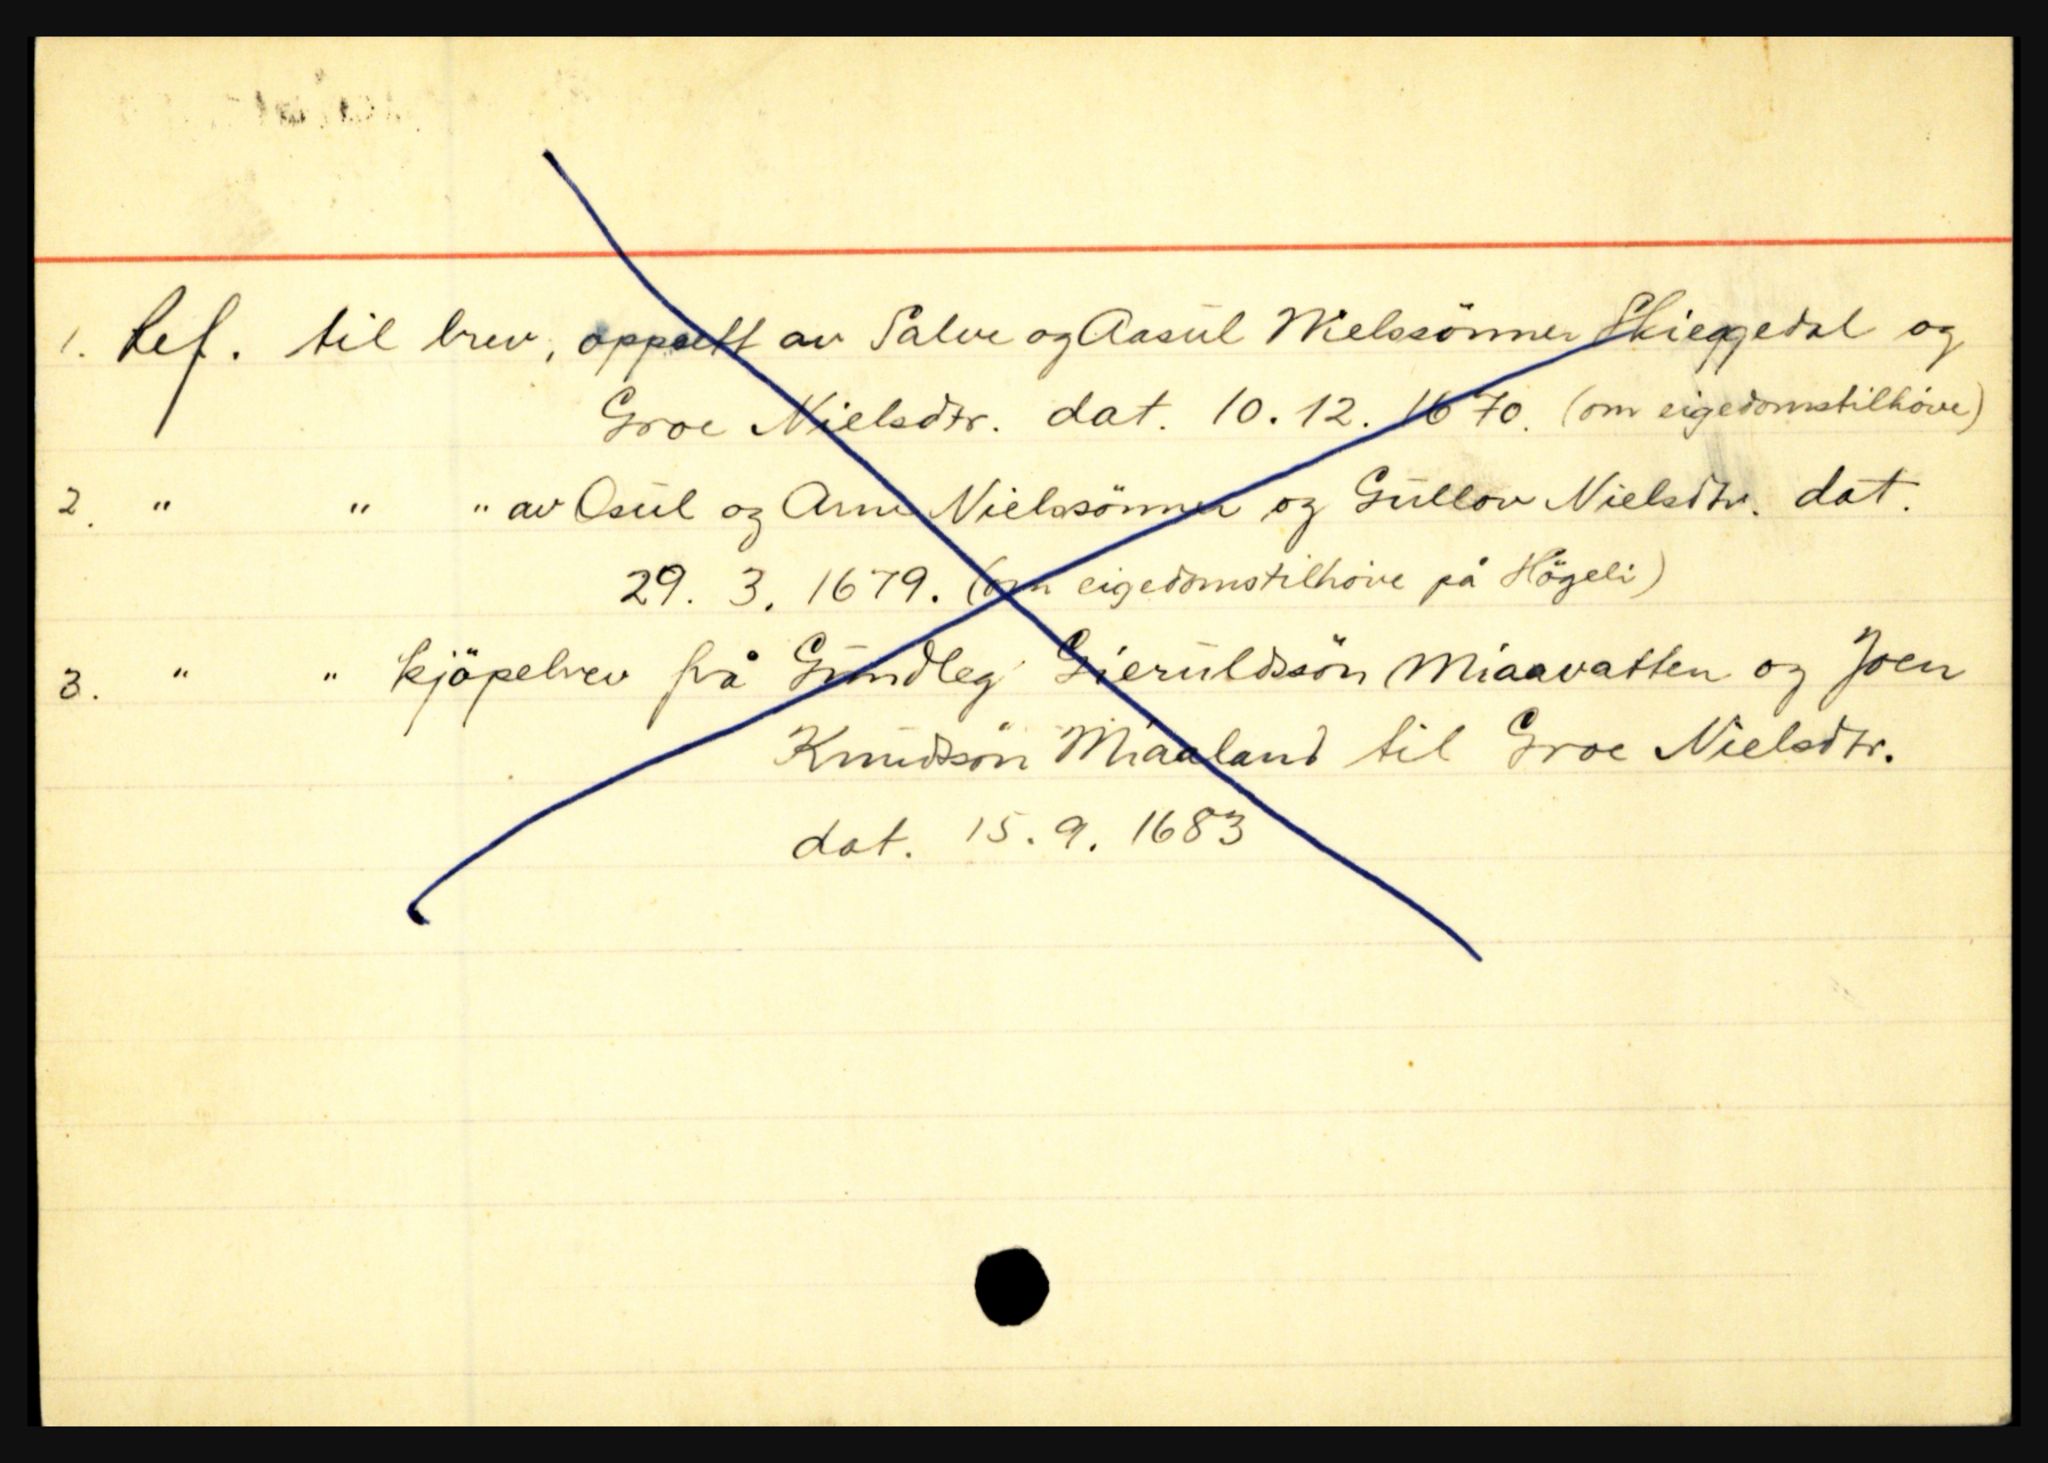 1. Ref. til brev, oppsett av Salve og Aasül Nielssönner Skieggedal og
Groe Nielsdtr. dat. 10.12.1670. (om eigedomstilhöve)
2. " " " av Osül og Arne Nielssönner og Güllov Nielsdtr. dat.
29. 3. 1679. (om eigedomstilhöve på Högeli)
3. " " kjöpebrev frå Gündleg Gierüldssön Miaavatten og Joen
Knüdssön Miaaland til Groe Nielsdtr.
dat. 15.9. 1683